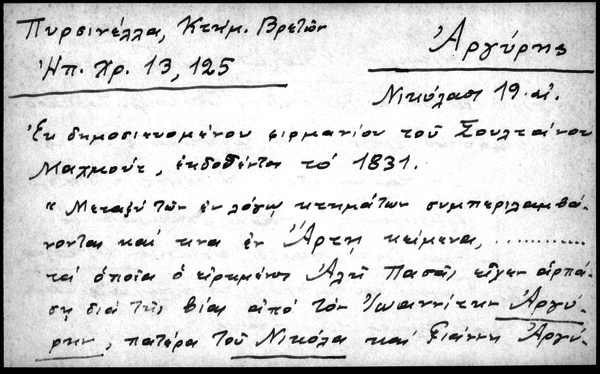 Πυρσινέλλα, Κτημ. Βρετῶν
Ἠπ. Χρ. 13, 125
Ἀργύρης
Νικόλαος 19. αἰ.
Ἐκ δημοσιευομένου φιρμανίου τοῦ Σουλτάνου
Μαχμούτ, ἐκδοθέντος τό 1831.
"Μεταξύ τῶν ἐν λόγῳ κτημάτων συμπεριλαμβά-
νονται καί τινα ἐν Ἄρτῃ κείμενα, ............
τά ὁποῖα ὁ εἰρημένος Ἀλῆ Πασᾶς εἶχεν ἁρπά-
σῃ διά τῆς βίας ἀπό τόν Ἰωαννίτην Ἀργύ-
ρην, πατέρα τοῦ Νικόλα καί Γιάννη Ἀργύ-